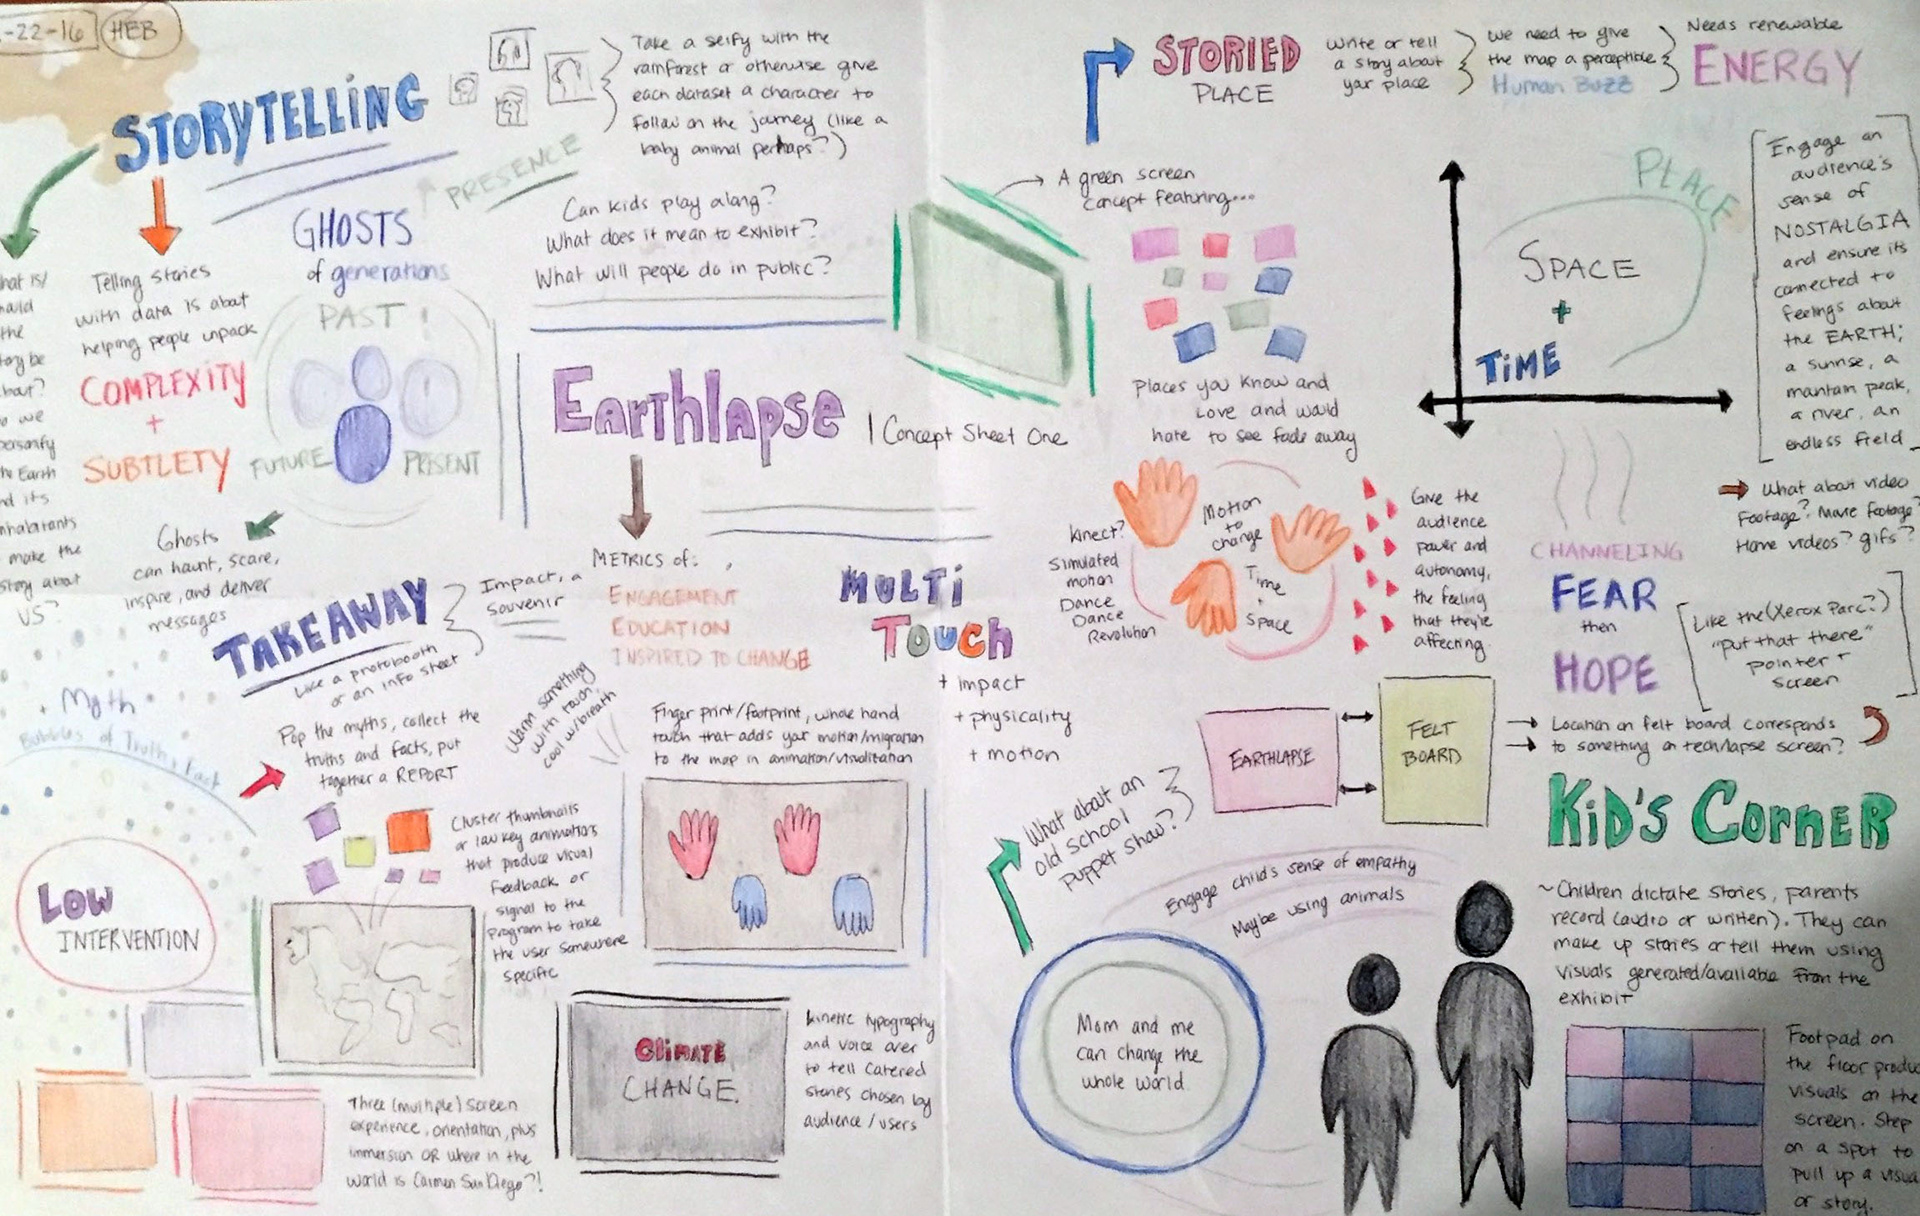 -22-16 HEB
STORYTELLING
Take a selfy with the
rainforest or otherwise give
each dataset a character to
follow on the journey (like a
baby animal perhaps?)
PRESENCE
Can kids play along?
What does it mean to exhibit?
What will people do in public?
hat is/
the
bout?
o we
personify
the Earth
nd its
nhabitants
make the
story about
US?
Telling stories
with data is about
helping people unpack
COMPLEXITY
+
SUBTLETY
GHOSTS
of generations
PAST
FUTURE
PRESENT
Ghosts
can haunt, scare,
inspire, and deliver
messages
Earthlapse
| Concept Sheet One
METRICS of:
ENGAGEMENT
EDUCATION
INSPIRED TO CHANGE
TAKEAWAY
Impact, a
souvenir
Like a photobooth
or an info sheet
+ Myth
Bubbles of Truth + Fact
Pop the myths, collect the
truths and facts, put
together a REPORT
Warm something
with touch,
cool w/breath
LOW
INTERVENTION
Cluster thumbnails
or low key animations
that produce visual
feedback or
signal to the
program to take
the user somewhere
specific
Three (multiple) screen
experience, orientation, plus
immersion OR where in the
world is Carmen SanDiego?!
MULTI
TOUCH
+ impact
+ physicality
+ motion
Finger print/footprint, whole hand
touch that adds your motion/migration
to the map in animation/visualization
CLIMATE
CHANGE.
kinetic typography
and voice over
to tell catered
stories chosen by
audience/users
STORIED
PLACE
Write or tell
a story about
your place
We need to give
the map a perceptible
Human Buzz
Needs renewable
ENERGY
A green screen
concept featuring...
Places you know and
love and would
hate to see fade away
PLACE
SPACE
+
TIME
Engage an
audience's
sense of
NOSTALGIA
and ensure its
connected to
feelings about
the EARTH;
a sunrise, a
mountain peak,
a river, an
endless field
What about video
footage? Movie footage?
Home videos? gifs?
Kinect?
Simulated
motion
Dance
Dance
Revolution
Motion
to
change
Time
+
Space
Give the
audience
power and
autonomy,
the feeling
that they're
affecting.
CHANNELING
FEAR
then
HOPE
Like the (Xerox Parc?)
"put that there"
pointer +
screen
EARTHLAPSE
FELT
BOARD
Location on felt board corresponds
to something on tech/lapse screen?
What about an
old school
puppet show?
KID'S CORNER
Engage child's sense of empathy
Maybe using animals
Mom and me
can change the
whole world
~Children dictate stories, parents
record (audio or written). They can
make up stories or tell them using
visuals generated/available from the
exhibit
Footpad on
the floor produ
visuals on the
screen. Step
on a spot to
pull up a visua
or story.